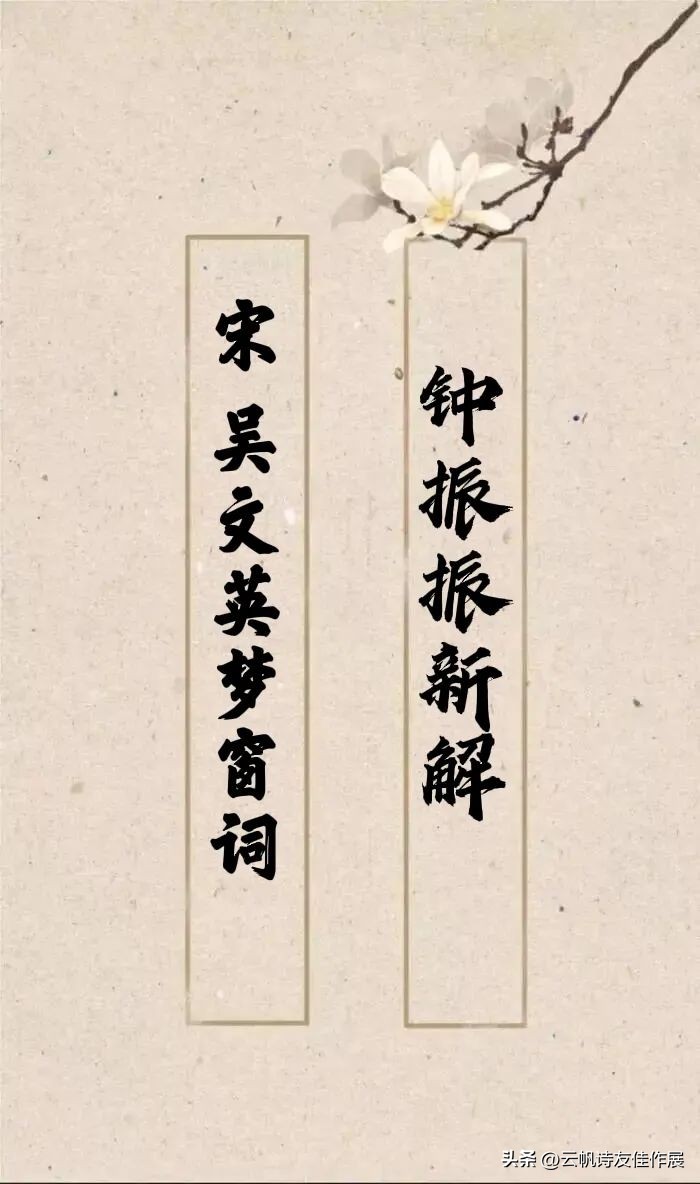 宋 吴文英梦窗词
钟振振新解
头条 @云帆诗友佳作展